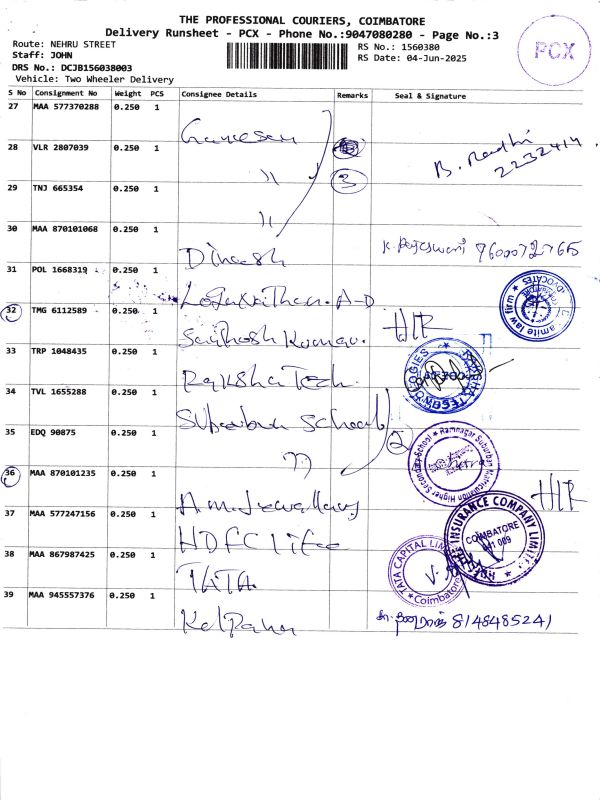 THE PROFESSIONAL COURIERS, COIMBATORE
Delivery Runsheet - PCX - Phone No.:9047080280 - Page No.:3
Route: NEHRU STREET
Staff: JOHN
DRS No.: DCJB156038003
Vehicle: Two Wheeler Delivery
RS No.: 1560380
RS Date: 04-Jun-2025
PCX
S No Consignment No Weight PCS Consignee Details Remarks Seal & Signature
27 MAA 577370288 0.250 1 Ganesan
B. Radhi
2232414
28 VLR 2807039 0.250 1 〃
29 TNJ 665354 0.250 1 〃 3
30 MAA 870101068 0.250 1 Dinesh K. Rajeswari 9600072765
31 POL 1668319 0.250 1 Loganathan. A-D
law firm ADVOCATES
32 TMG 6112589 0.250 1 Santhosh Kumar. HLR
33 TRP 1048435 0.250 1 Raksha Tech.
34 TVL 1655288 0.250 1 Suburban School
35 EDQ 90875 0.250 1 〃 2
Ramnagar Suburban Matriculation Higher Secondary School
36 MAA 870101235 0.250 1 A.M. Jewellery HLR
37 MAA 577247156 0.250 1 HDFC Life
INSURANCE COMPANY LIMITED
COIMBATORE
38 MAA 867987425 0.250 1 TATA
TATA CAPITAL LIMITED
Coimbatore
39 MAA 945557376 0.250 1 Kalpana 8148485241